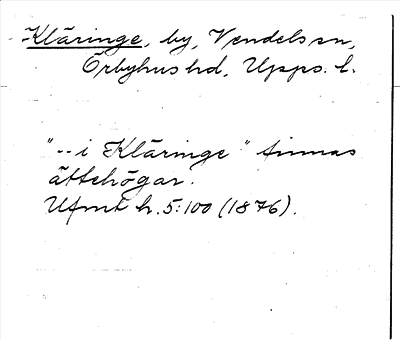 Kläringe, by, Vendels sn,
Örbyhus hd, Upps. l.
"-- i Kläringe" finnas
ättehögar.
Ufmt h. 5:100 (1876).